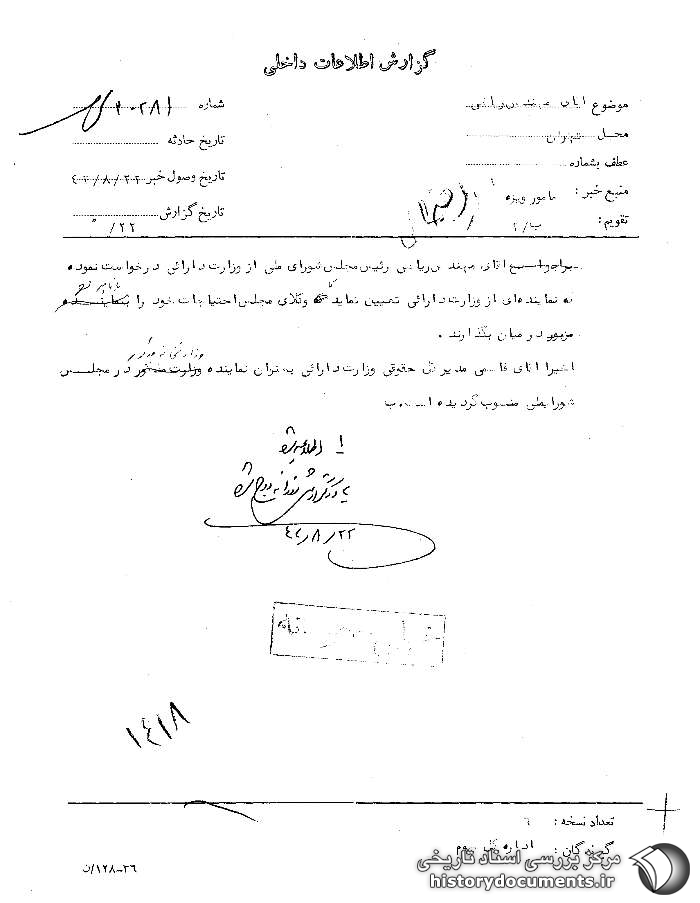 گزارش اطلاعات داخلی
موضوع آقای مهندس ریاضی
محل تهران
عطف بشماره
منبع خبر : مامور ویژه
تقویم : ب/۲
شماره ۲۰۲۸۱
تاریخ حادثه
تاریخ وصول خبر ۴۲/۸/۲۲
تاریخ گزارش ۲۲/
آقای مهندس ریاضی رئیس مجلس شورای ملی از وزارت دارائی درخواست نموده
که نماینده‌ای از وزارت دارائی تعیین نماید تا وکلای مجلس احتیاجات خود را با نامبرده
در میان بگذارند .
اخیرا آقای قاسمی مدیر کل حقوقی وزارت دارائی به عنوان نماینده وزارتخانه مزبور در مجلس
شورایملی منصوب گردیده است.ب
۴۲/۸/۲۲
۱۴۱۸
تعداد نسخه : ۶
گیرندگان : اداره کل سوم
۳۶-۱۲۸/ن
مرکز بررسی اسناد تاریخی
historydocuments.ir